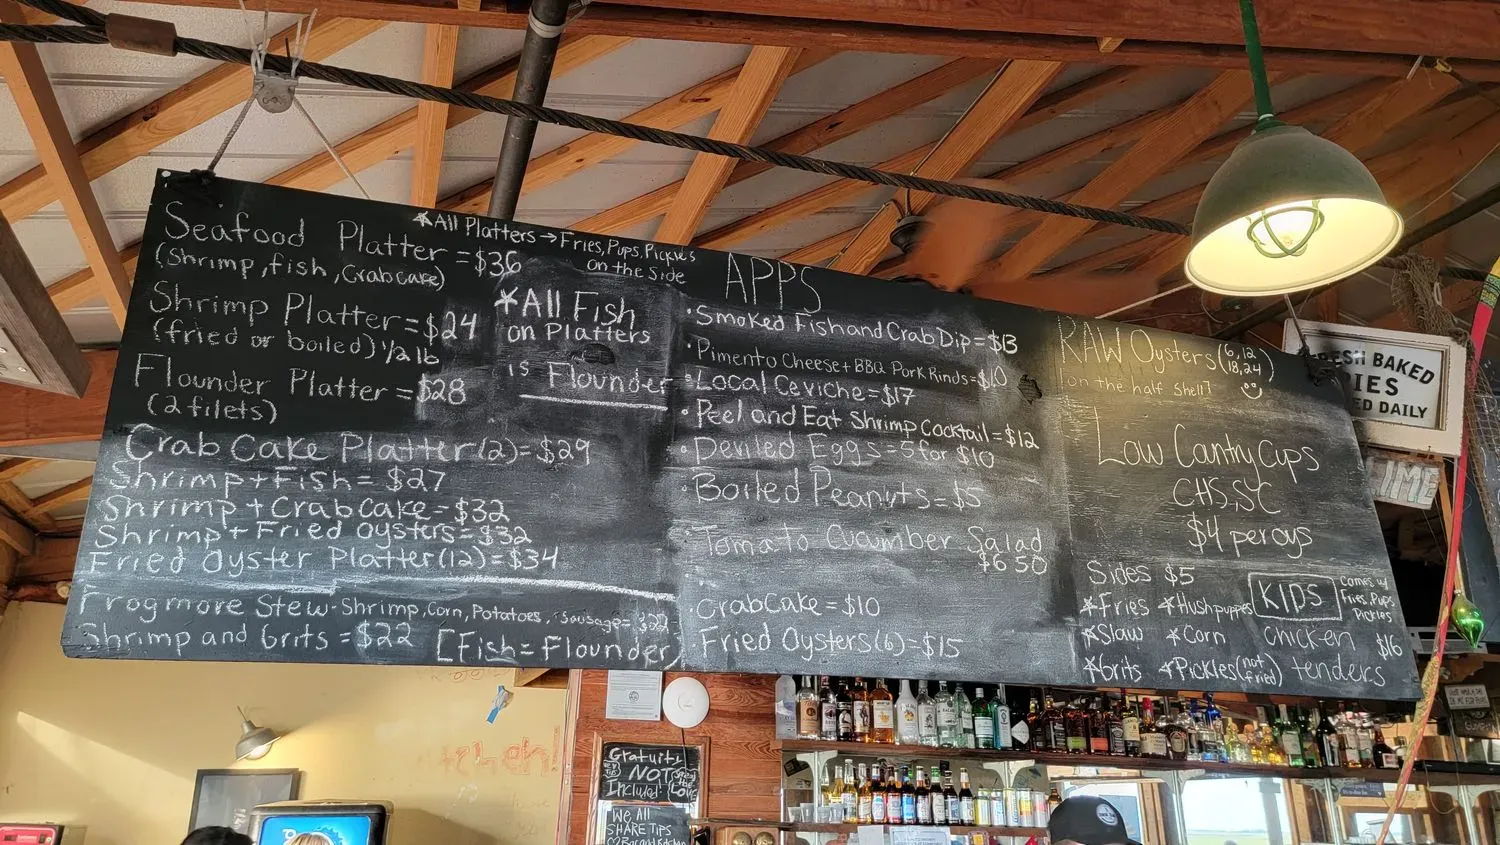 Seafood Platter = $36
(Shrimp, fish, Crab cake)
Shrimp Platter = $24
(fried or boiled) 1/2 lb
Flounder Platter = $28
(2 filets)
Crab Cake Platter (2) = $29
Shrimp + Fish = $27
Shrimp + Crab cake = $32
Shrimp + Fried oysters = $32
Fried Oyster Platter (12) = $34
Frogmore Stew - Shrimp, Corn, Potatoes, Sausage = $22
Shrimp and Grits = $22
[Fish = Flounder]
*All Platters → Fries, Pups, Pickles
on the Side
*All Fish
on Platters
is Flounder
APPS
• Smoked Fish and Crab Dip = $13
• Pimento Cheese + BBQ Pork Rinds = $10
• Local Ceviche = $17
• Peel and Eat Shrimp Cocktail = $12
• Deviled Eggs = 5 for $10
• Boiled Peanuts = $5
Tomato Cucumber Salad
$6.50
• Crab Cake = $10
• Fried Oysters (6) = $15
RAW Oysters (6, 12
18, 24)
on the half shell
Low Cantry Cups
CHS, SC
$4 per oys
Sides $5
*Fries *Hushpuppies
*Slaw *Corn
*Grits *Pickles (not
fried)
KIDS
Comes w/
Fries, Pups
Pickles
chicken $16
tenders
FRESH BAKED
PIES
BAKED DAILY
TIME
Gratuity
NOT
Included!
We All
SHARE TIPS